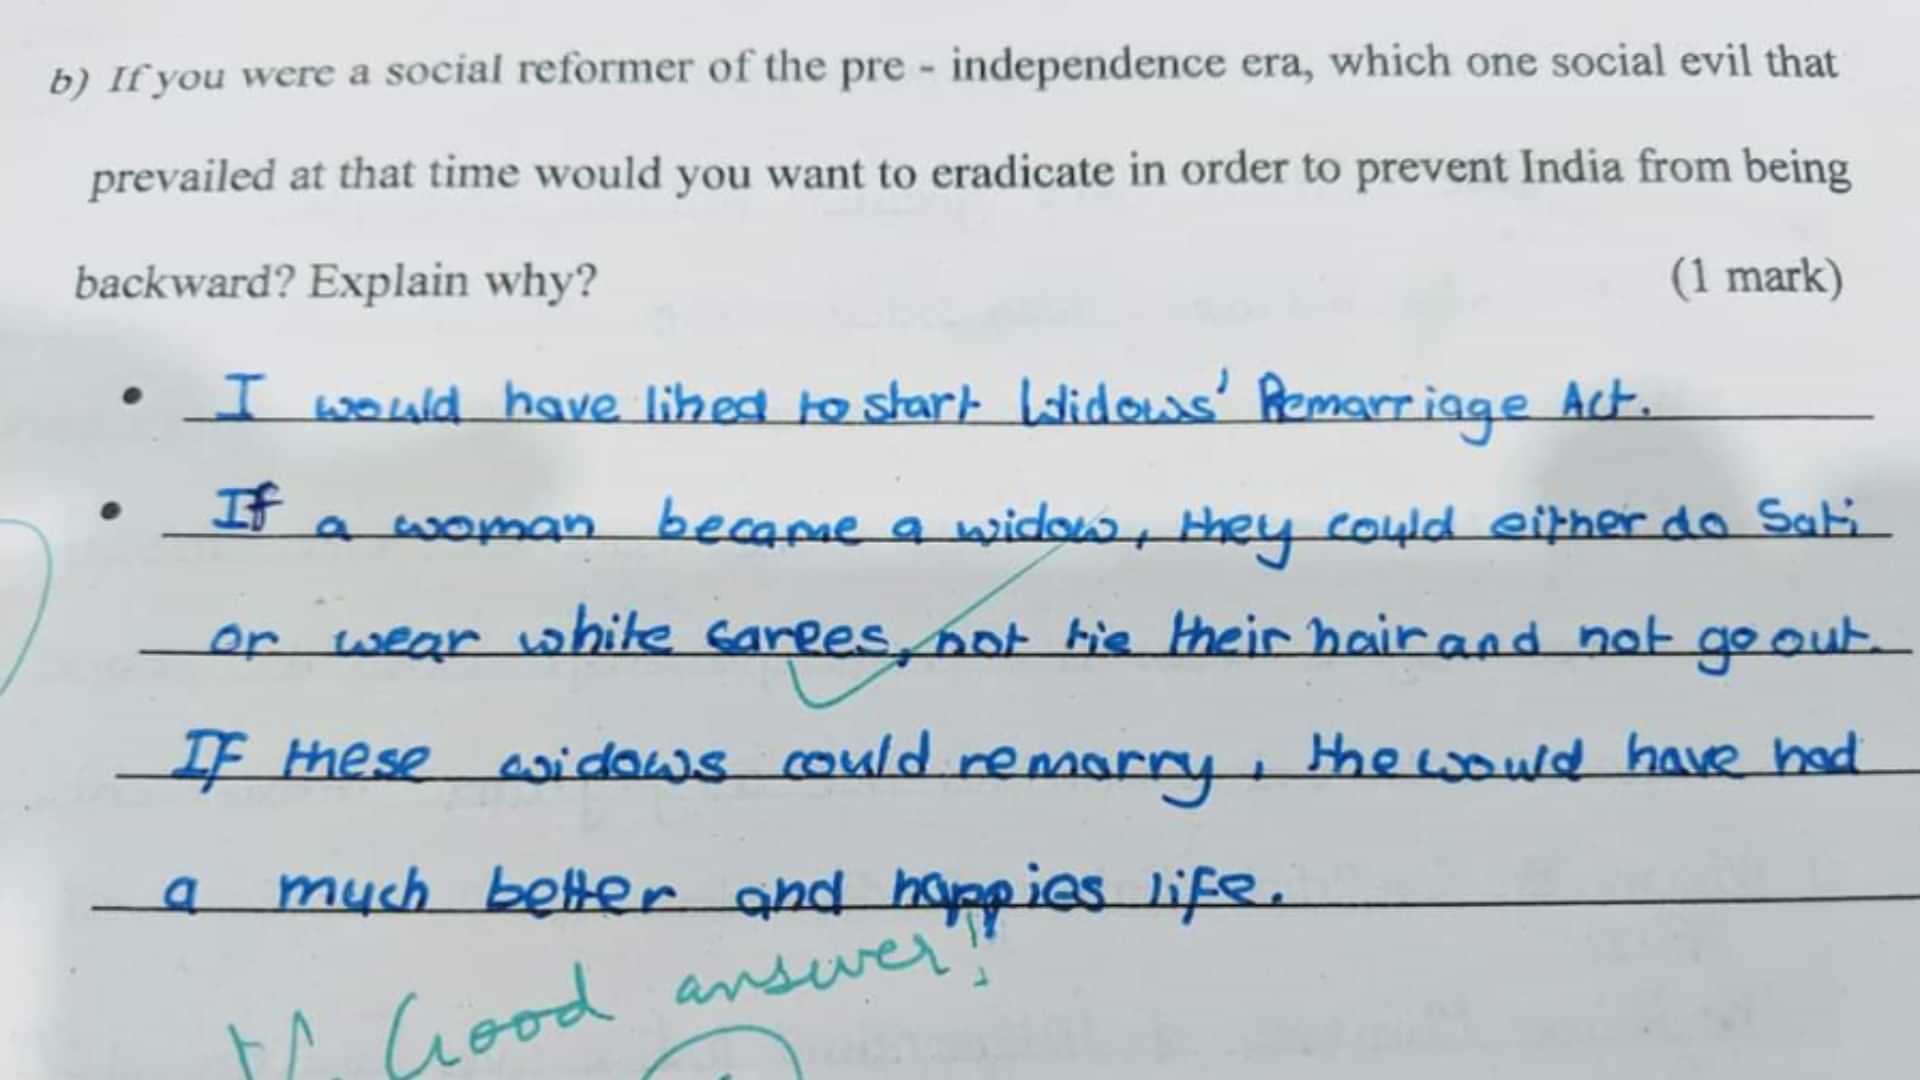 b) If you were a social reformer of the pre - independence era, which one social evil that
prevailed at that time would you want to eradicate in order to prevent India from being
backward? Explain why?
(1 mark)
• I would have liked to start Widows' Remarriage Act.
• If a woman became a widow, they could either do Sati
or wear white sarees, not tie their hair and not go out.
If these widows could remarry, the would have had
a much better and happies life.
Good answer!